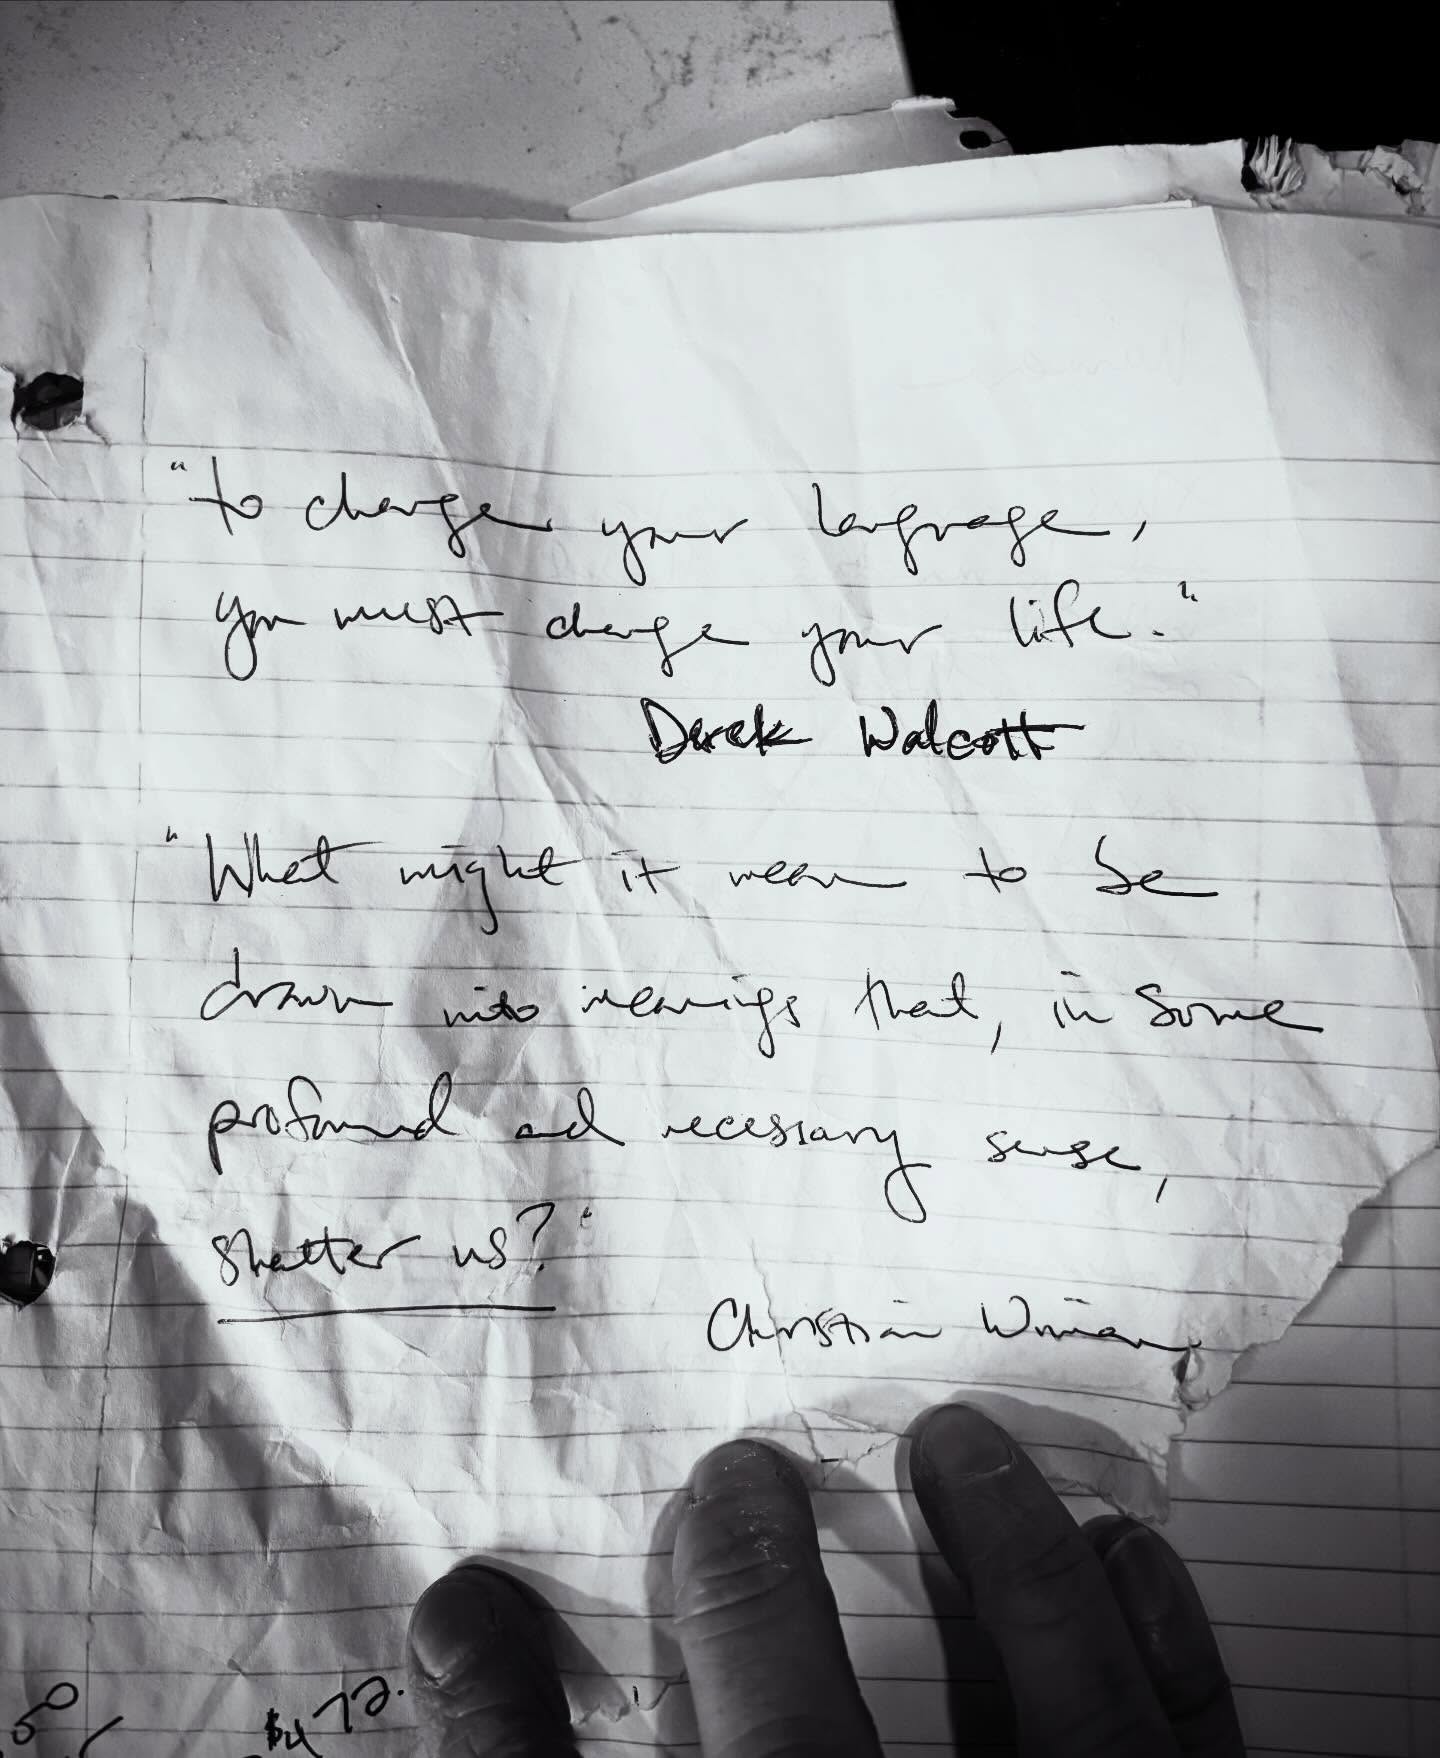 "to change your language,
you must change your life."
Derek Walcott
"What might it mean to be
drawn into meanings that, in some
profound and necessary sense,
shatter us?"
Christian Wiman
50
$472.